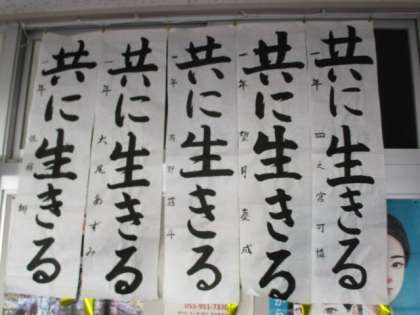 共に生きる
一年 四之宮可
共に生きる
一年 望月
共に生きる
一年
共に生きる
一年 大尾あずみ
共に生きる
一年 佐
055-951-7